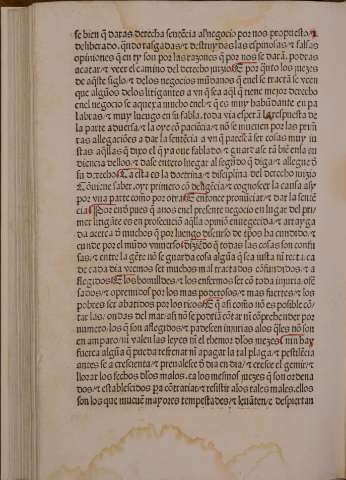 se bien q̃ daras derecha sentẽcia al negocio por nos propuesto/⁊
deliberado. qñdo rasgadas/⁊ destruydas las espinosas/⁊ falsas
opiniones q̃ en ty son por las razones q̃ por nos se darã. podras
acatar/⁊ veer el camino del derecho juyzio Por q̃nto los juezes
de aq̃ste siglo/⁊ delos negocios mũdanos q̃ en el se tractã se veen
que algũos delos litigantes a vñ q̃ sea aq̃l q̃ tiene mejor derecho
en el negocio se aquexa mucho en el/⁊ q̃ es muy habũdante en pa
labras/⁊ muy luengo en su fabla. toda via esperã la respuesta de
la parte aduersa/⁊ la oye cõ paciẽcia/⁊ nõ se mueuen por las prim̃
tas allegaciões a dar la sentẽcia a vñ q̃ parescã ser cosas muy iu
stas aq̃llas q̃ dixo el q̃ ya oue fablado/⁊ guardase tã biẽ en la au
diencia dellos/⁊ dase entero luegar al segũdo q̃ diga/⁊ allegue d̃
su derecho Ca esta es la doctrina/⁊ disciplina del derecho juizio
Cõuiene saber. oyr primero cõ deligẽcia/⁊ cognoscer la causa asy
por vna parte como por otra Entonce pronũciar/⁊ dar la sentẽ
cia Por ende pues q̃ anos en el presente negocio en lugar del pri
mer litigante es en prosecuciõ aq̃lla opiniõ enuegecida/⁊ arrayga
dia acerca d̃ muchos q̃ por luengo discurso de tp̃os ha cundido/⁊
cunde por el mũdo vniuerso diziẽdo q̃ todas las cosas son confu
sas/⁊ entre la gẽte nõ se guarda cosa algũa q̃ sea iusta ni recta. ca
de cada dia vemos ser muchos mal tractados cõfundidos/⁊ a
flegidos los homilldes/⁊ los enfermos ser cõ toda injuria. ofẽ
sados/⁊ opremidos por los mas poderosos/⁊ mas fuertes/⁊ los
pobres ser abatidos por los ricos E q̃ asi como nõ es posible cõ
tar las/ondas del mar/asi nõ se podriã cõtar ni cõprehender por
numero. los q̃ son aflegidos/⁊ padescen injurias alos q̃les nõ son
en amparo/ni valen las leyes ni el themor dlos juezes nin hay
fuerça algũa q̃ pueda refrenar ni apagar la tal plaga/⁊ pestilẽcia
antes se a crescienta/⁊ preualesce d̃ dia en dia/⁊ cresse el gemir/⁊
llorar los fechos dlos malos. ca los mesmos juezes q̃ son ordena
dos/⁊ establescidos pa cõtrariar/⁊ resistir alos tales males. ellos
son los que mueuẽ mayores tempestades/⁊ leuãten/⁊ despiertan